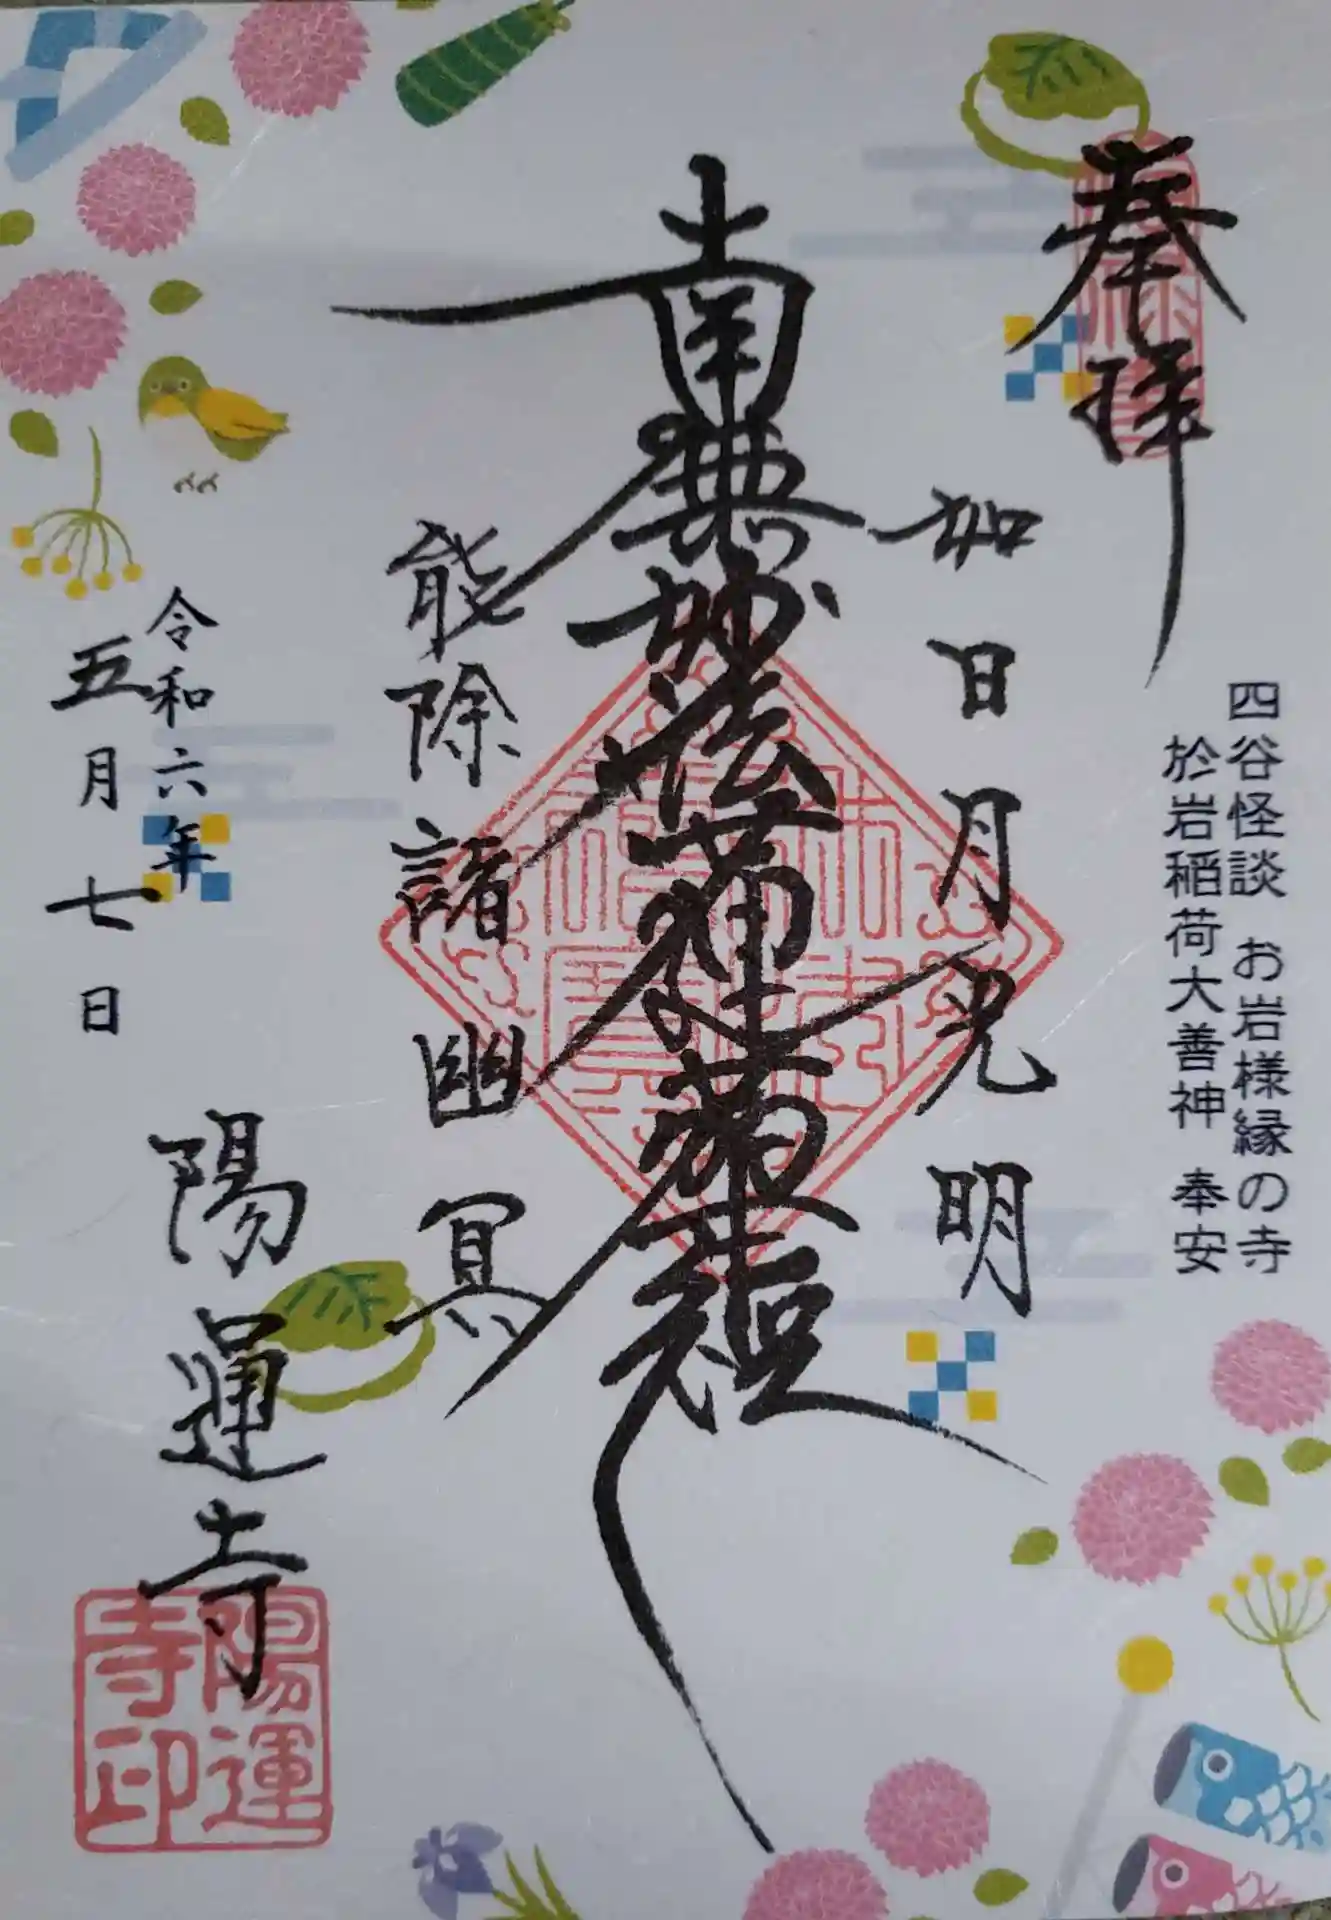 奉拝
四谷怪談 お岩様縁の寺
於岩稲荷大善神 奉安
如日月光明
南無妙法蓮華経
能除諸幽冥
令和六年
五月七日
陽運寺
陽運寺印